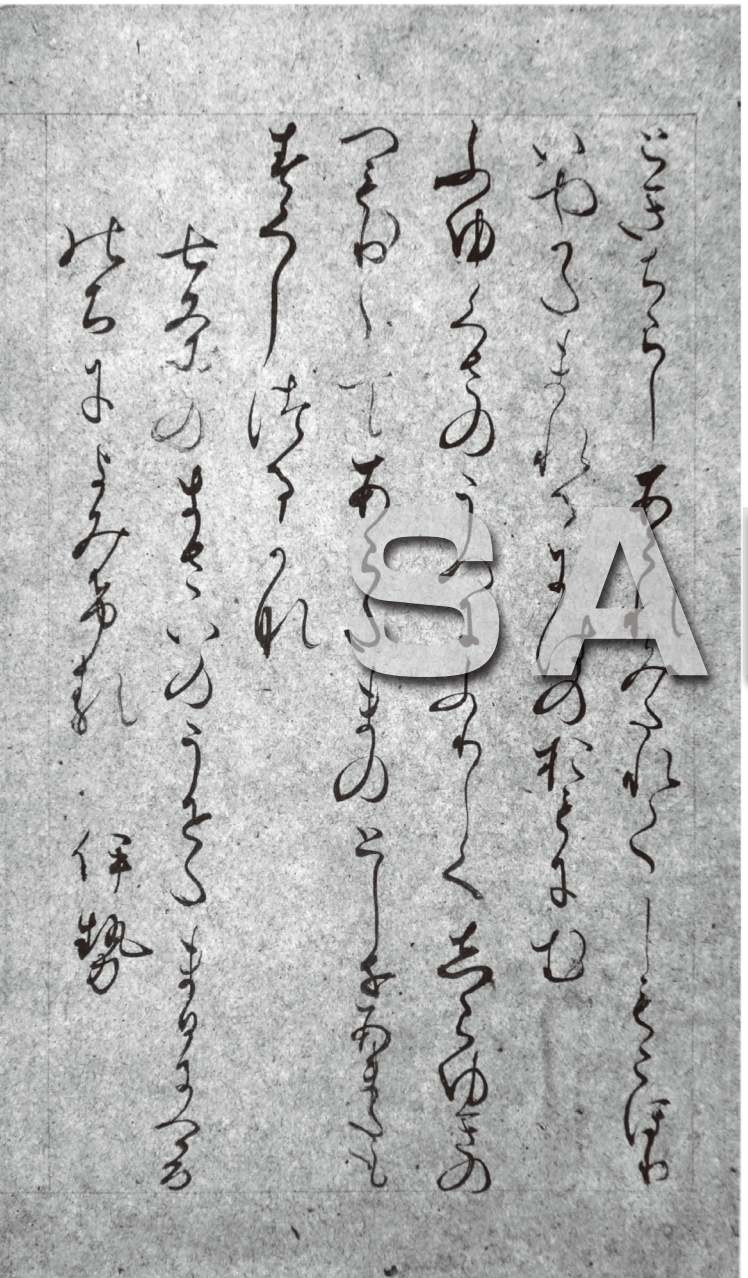 こきちらしあられみたれてしもこほり
いやかたまれるにはのおもにむ
ふゆくさのうへにふりしくしらゆきの
つもり〱てあらたまのとしをあまたも
すくしつるかな
七条のきさいのうせたまひにける
のちによみける　伊勢
SA